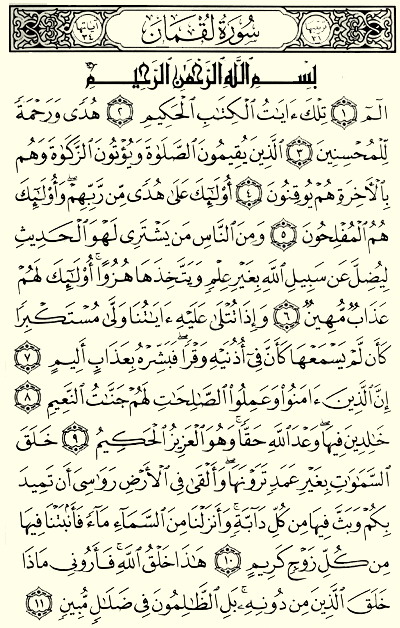 ترتيبها ٣١ سُورَةُ لُقْمَانَ آياتها ٣٤
بِسْمِ ٱللَّهِ ٱلرَّحْمَٰنِ ٱلرَّحِيمِ
الٓمٓ ١ تِلْكَ ءَايَٰتُ ٱلْكِتَٰبِ ٱلْحَكِيمِ ٢ هُدًى وَرَحْمَةً
لِّلْمُحْسِنِينَ ٣ ٱلَّذِينَ يُقِيمُونَ ٱلصَّلَوٰةَ وَيُؤْتُونَ ٱلزَّكَوٰةَ وَهُم
بِٱلْءَاخِرَةِ هُمْ يُوقِنُونَ ٤ أُو۟لَٰٓئِكَ عَلَىٰ هُدًى مِّن رَّبِّهِمْ ۖ وَأُو۟لَٰٓئِكَ
هُمُ ٱلْمُفْلِحُونَ ٥ وَمِنَ ٱلنَّاسِ مَن يَشْتَرِى لَهْوَ ٱلْحَدِيثِ
لِيُضِلَّ عَن سَبِيلِ ٱللَّهِ بِغَيْرِ عِلْمٍ وَيَتَّخِذَهَا هُزُوًا ۚ أُو۟لَٰٓئِكَ لَهُمْ
عَذَابٌ مُّهِينٌ ٦ وَإِذَا تُتْلَىٰ عَلَيْهِ ءَايَٰتُنَا وَلَّىٰ مُسْتَكْبِرًا
كَأَن لَّمْ يَسْمَعْهَا كَأَنَّ فِىٓ أُذُنَيْهِ وَقْرًا ۖ فَبَشِّرْهُ بِعَذَابٍ أَلِيمٍ ٧
إِنَّ ٱلَّذِينَ ءَامَنُوا۟ وَعَمِلُوا۟ ٱلصَّٰلِحَٰتِ لَهُمْ جَنَّٰتُ ٱلنَّعِيمِ ٨
خَٰلِدِينَ فِيهَا ۖ وَعْدَ ٱللَّهِ حَقًّا ۚ وَهُوَ ٱلْعَزِيزُ ٱلْحَكِيمُ ٩ خَلَقَ
ٱلسَّمَٰوَٰتِ بِغَيْرِ عَمَدٍ تَرَوْنَهَا ۖ وَأَلْقَىٰ فِى ٱلْأَرْضِ رَوَٰسِىَ أَن تَمِيدَ
بِكُمْ وَبَثَّ فِيهَا مِن كُلِّ دَآبَّةٍ ۚ وَأَنزَلْنَا مِنَ ٱلسَّمَآءِ مَآءً فَأَنۢبَتْنَا فِيهَا
مِن كُلِّ زَوْجٍ كَرِيمٍ ١٠ هَٰذَا خَلْقُ ٱللَّهِ فَأَرُونِى مَاذَا
خَلَقَ ٱلَّذِينَ مِن دُونِهِۦ ۚ بَلِ ٱلظَّٰلِمُونَ فِى ضَلَٰلٍ مُّبِينٍ ١١